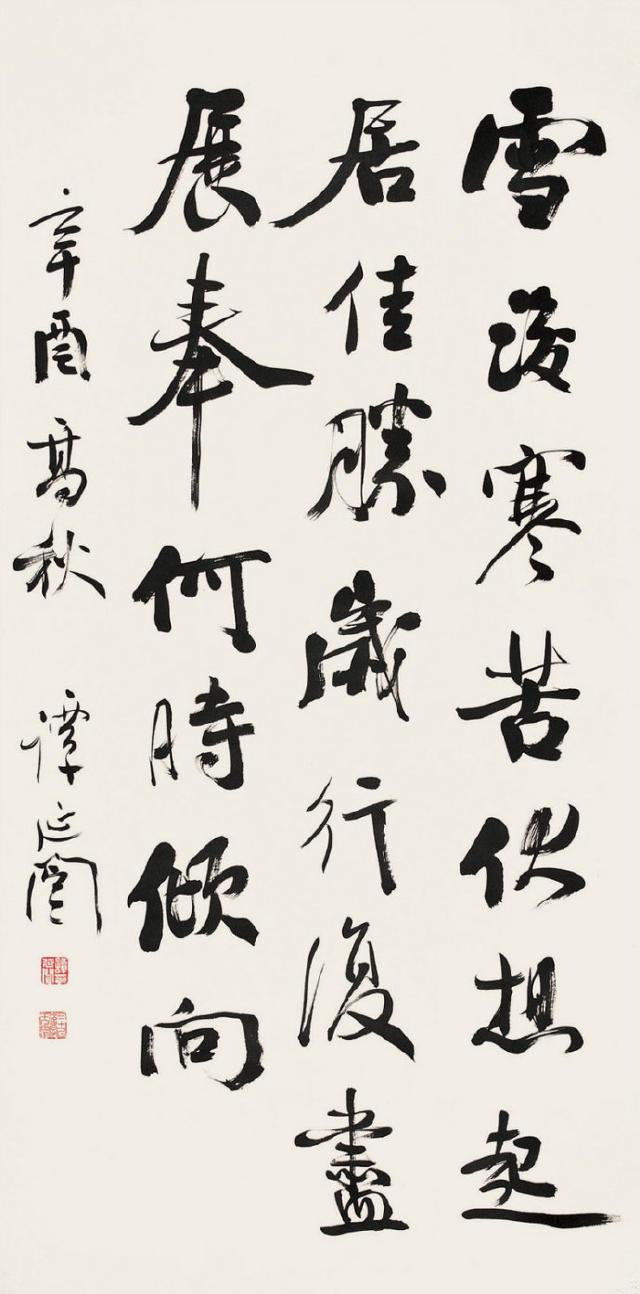 雪後寒苦伏想起
居佳勝歲行復盡
展奉何時傾向
辛酉高秋 譚延闓